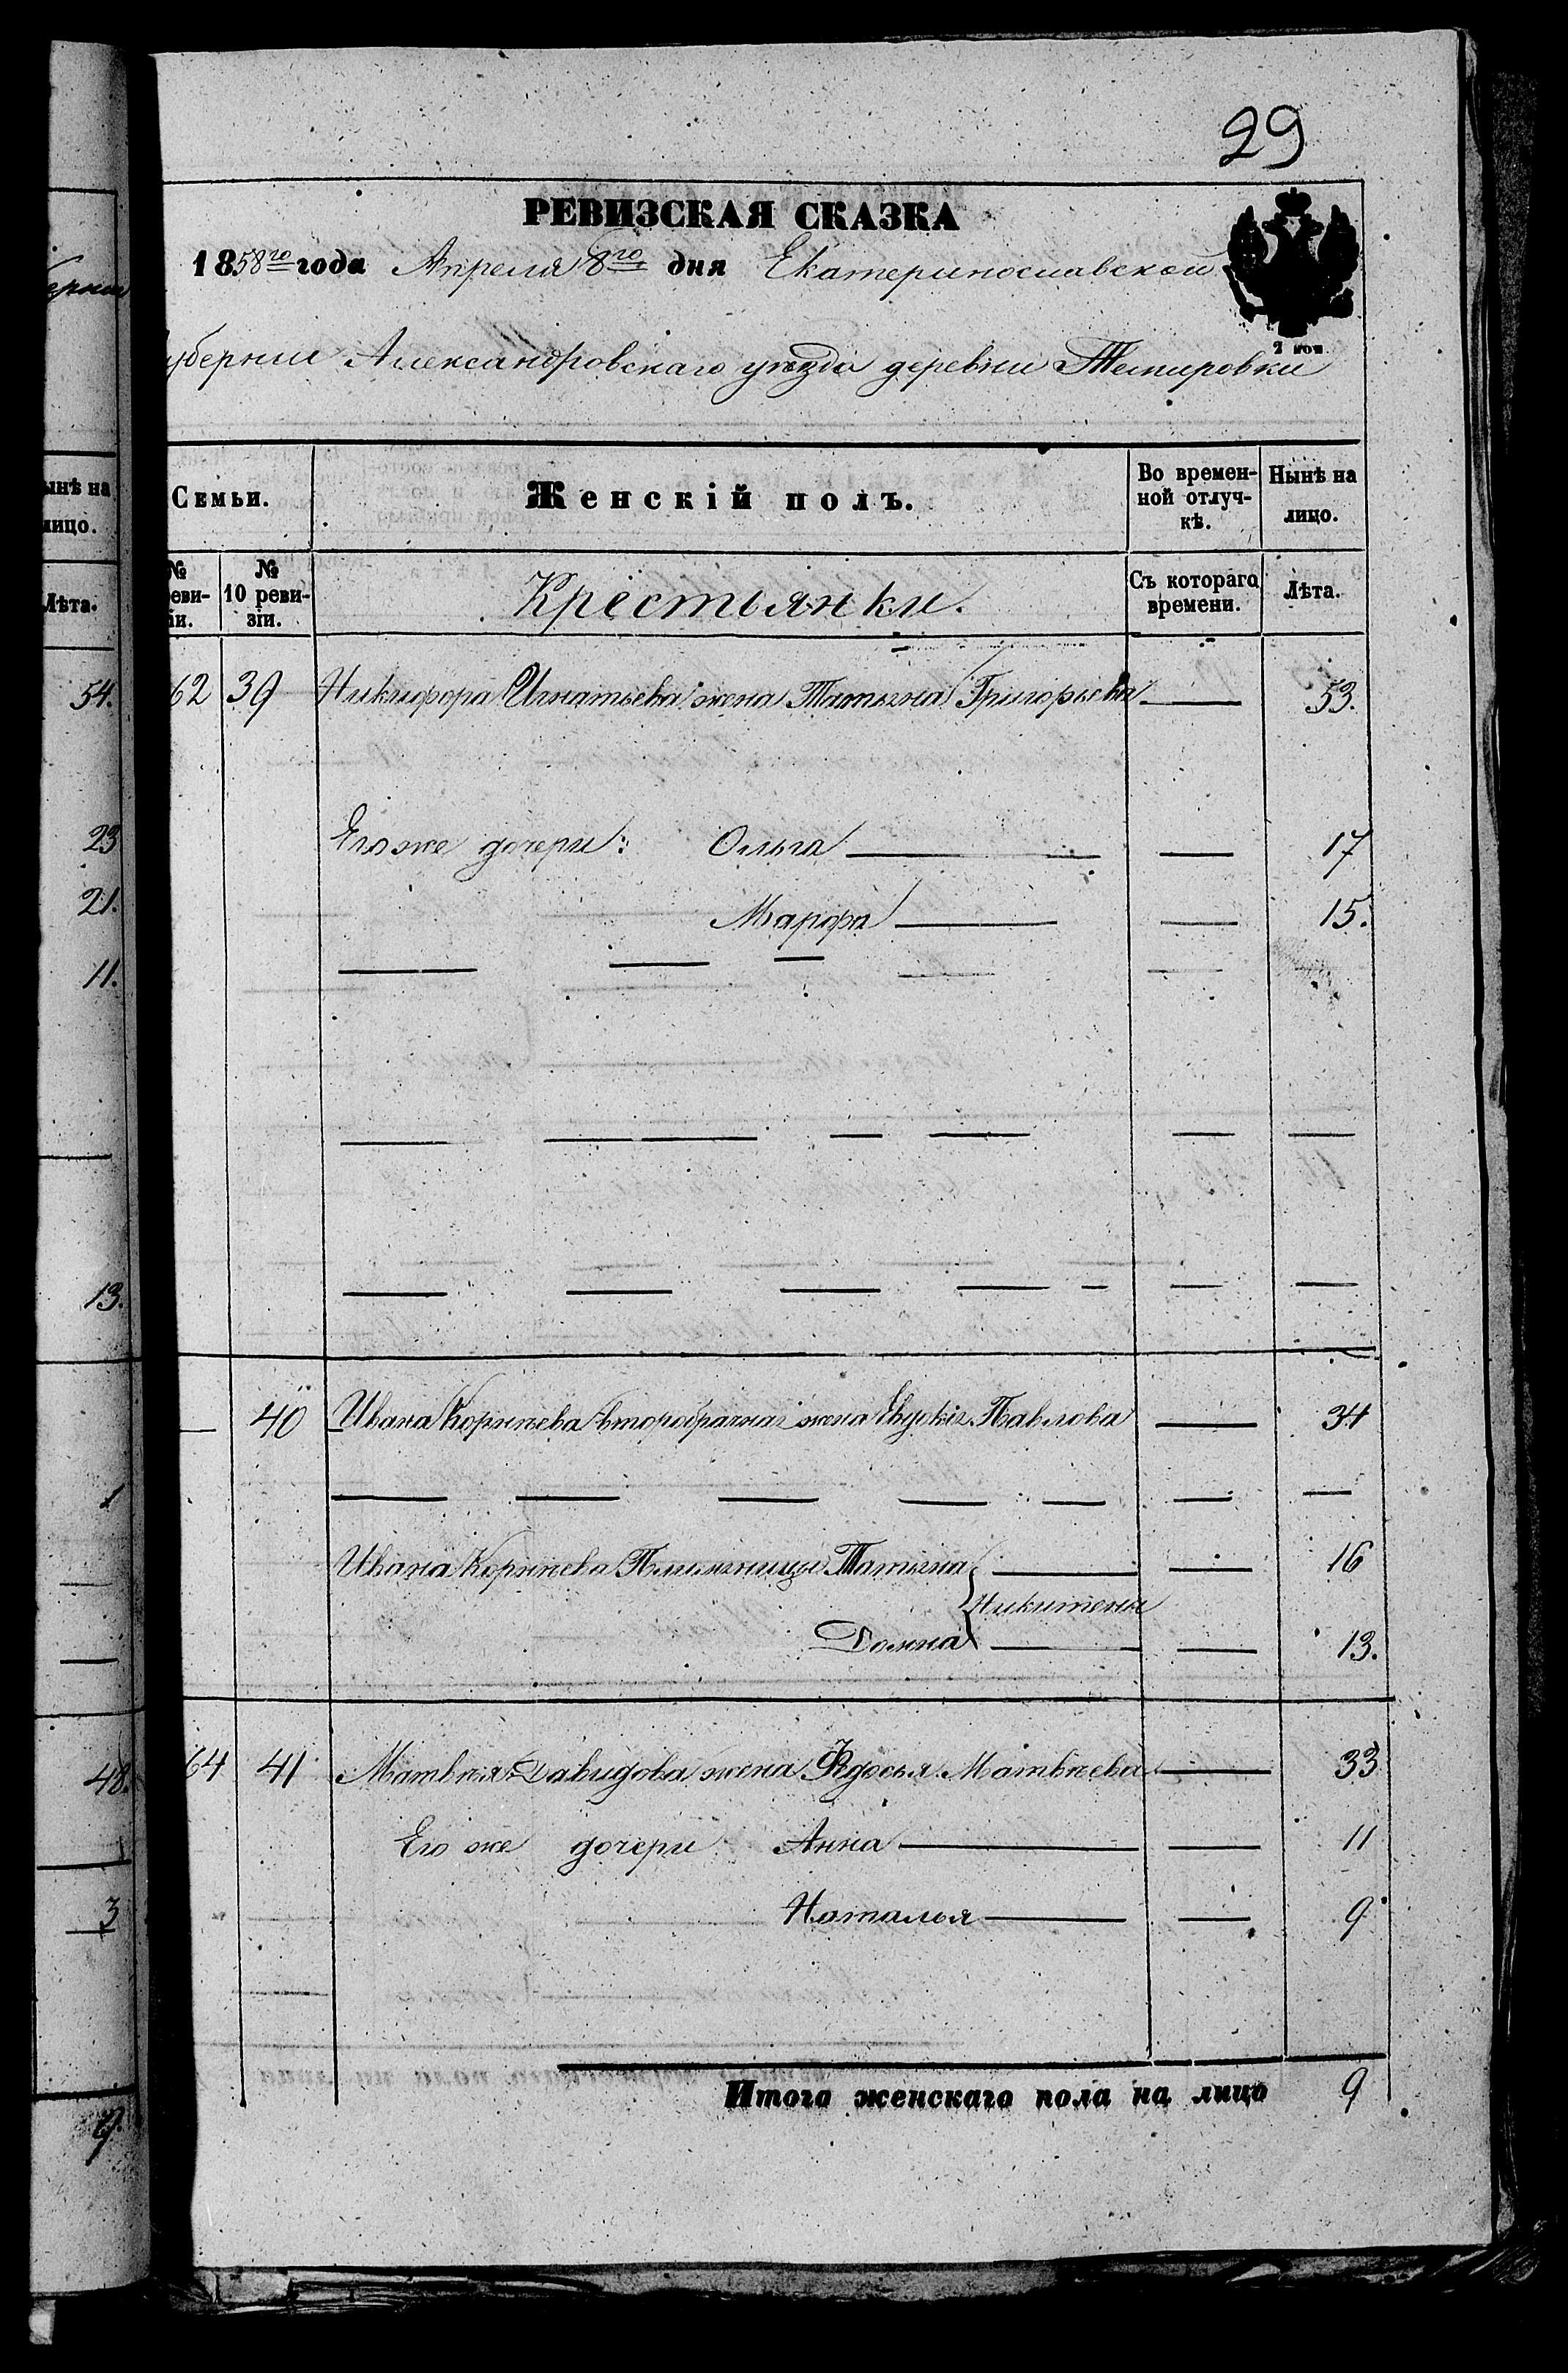 29
РЕВИЗСКАЯ СКАЗКА
1858го года Апреля 8го дня Екатеринославской
2 коп.
губернии Александровскаго уѣзда деревни Темировки
Семьи.
Женскій полъ.
Во времен-
ной отлуч-
кѣ.
Нынѣ на
лицо.
№
реви-
зіи.
№
10 реви-
зіи.
Крестьянки.
Съ котораго
времени.
Лѣта.
62 39 Никифора Игнатьева жена Татьяна Григорьева 53.
Его же дочери: Ольга 17
Марфа 15.
40 Ивана Корнѣева второбрачная жена Евдокія Павлова 34
Ивана Корнѣева Племянницы Татьяна 16
Никитены
Домна 13.
64 41 Матвѣя Давидова жена Федосья Матвѣева 33
Его же дочери Анна 11
Наталья 9
Итого женскаго пола на лицо 9
ынѣ на
лицо.
Лѣта.
54.
23
21.
11.
13.
1
48.
3
9.